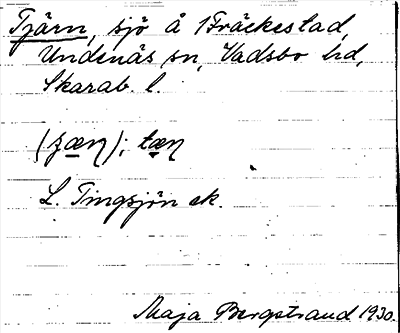 Tjärn, sjö å 1 Fräckestad,
Undenäs sn, Vadsbo hd,
Skarab. l.
(ʒæɳ); tæɳ
L. Tingsjön ek.
Maja Bergstrand 1930.